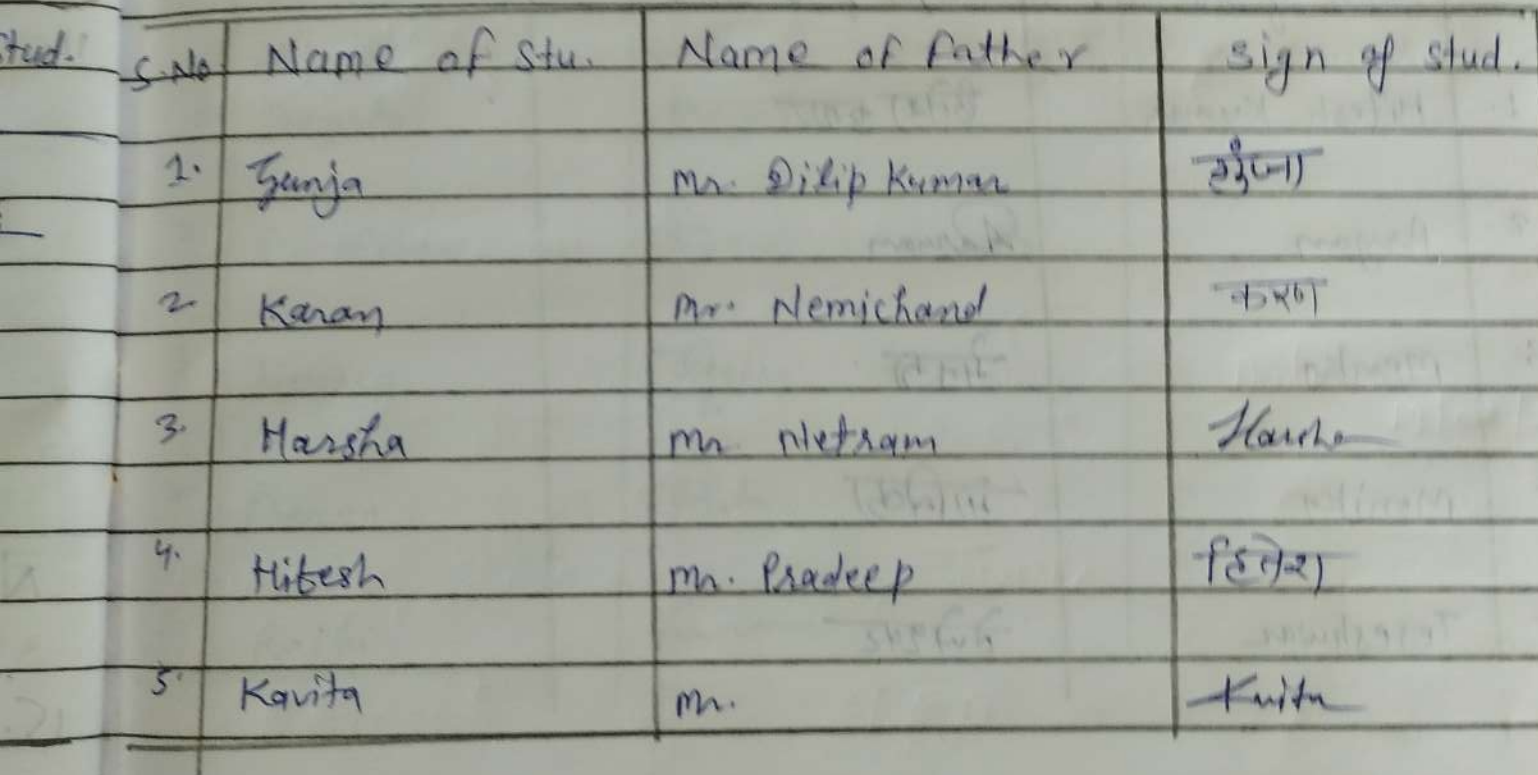 Stud.
S.No Name of Stu. Name of Father Sign of Stud.
1. Gunja Mr. Dilip Kumar गुंजा
2 Karan Mr. Nemichand करण
3. Harsha Mr Netram Harsha
4. Hitesh Mr. Pradeep हितेश
5. Kavita Mr. Kvita